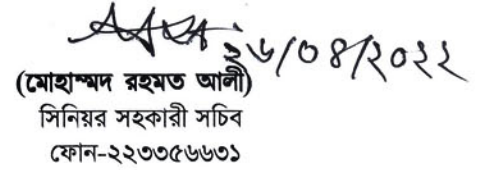 ২৬/০৪/২০২২
(মোহাম্মদ রহমত আলী)
সিনিয়র সহকারী সচিব
ফোন-২২৩৩৫৬৬৩১